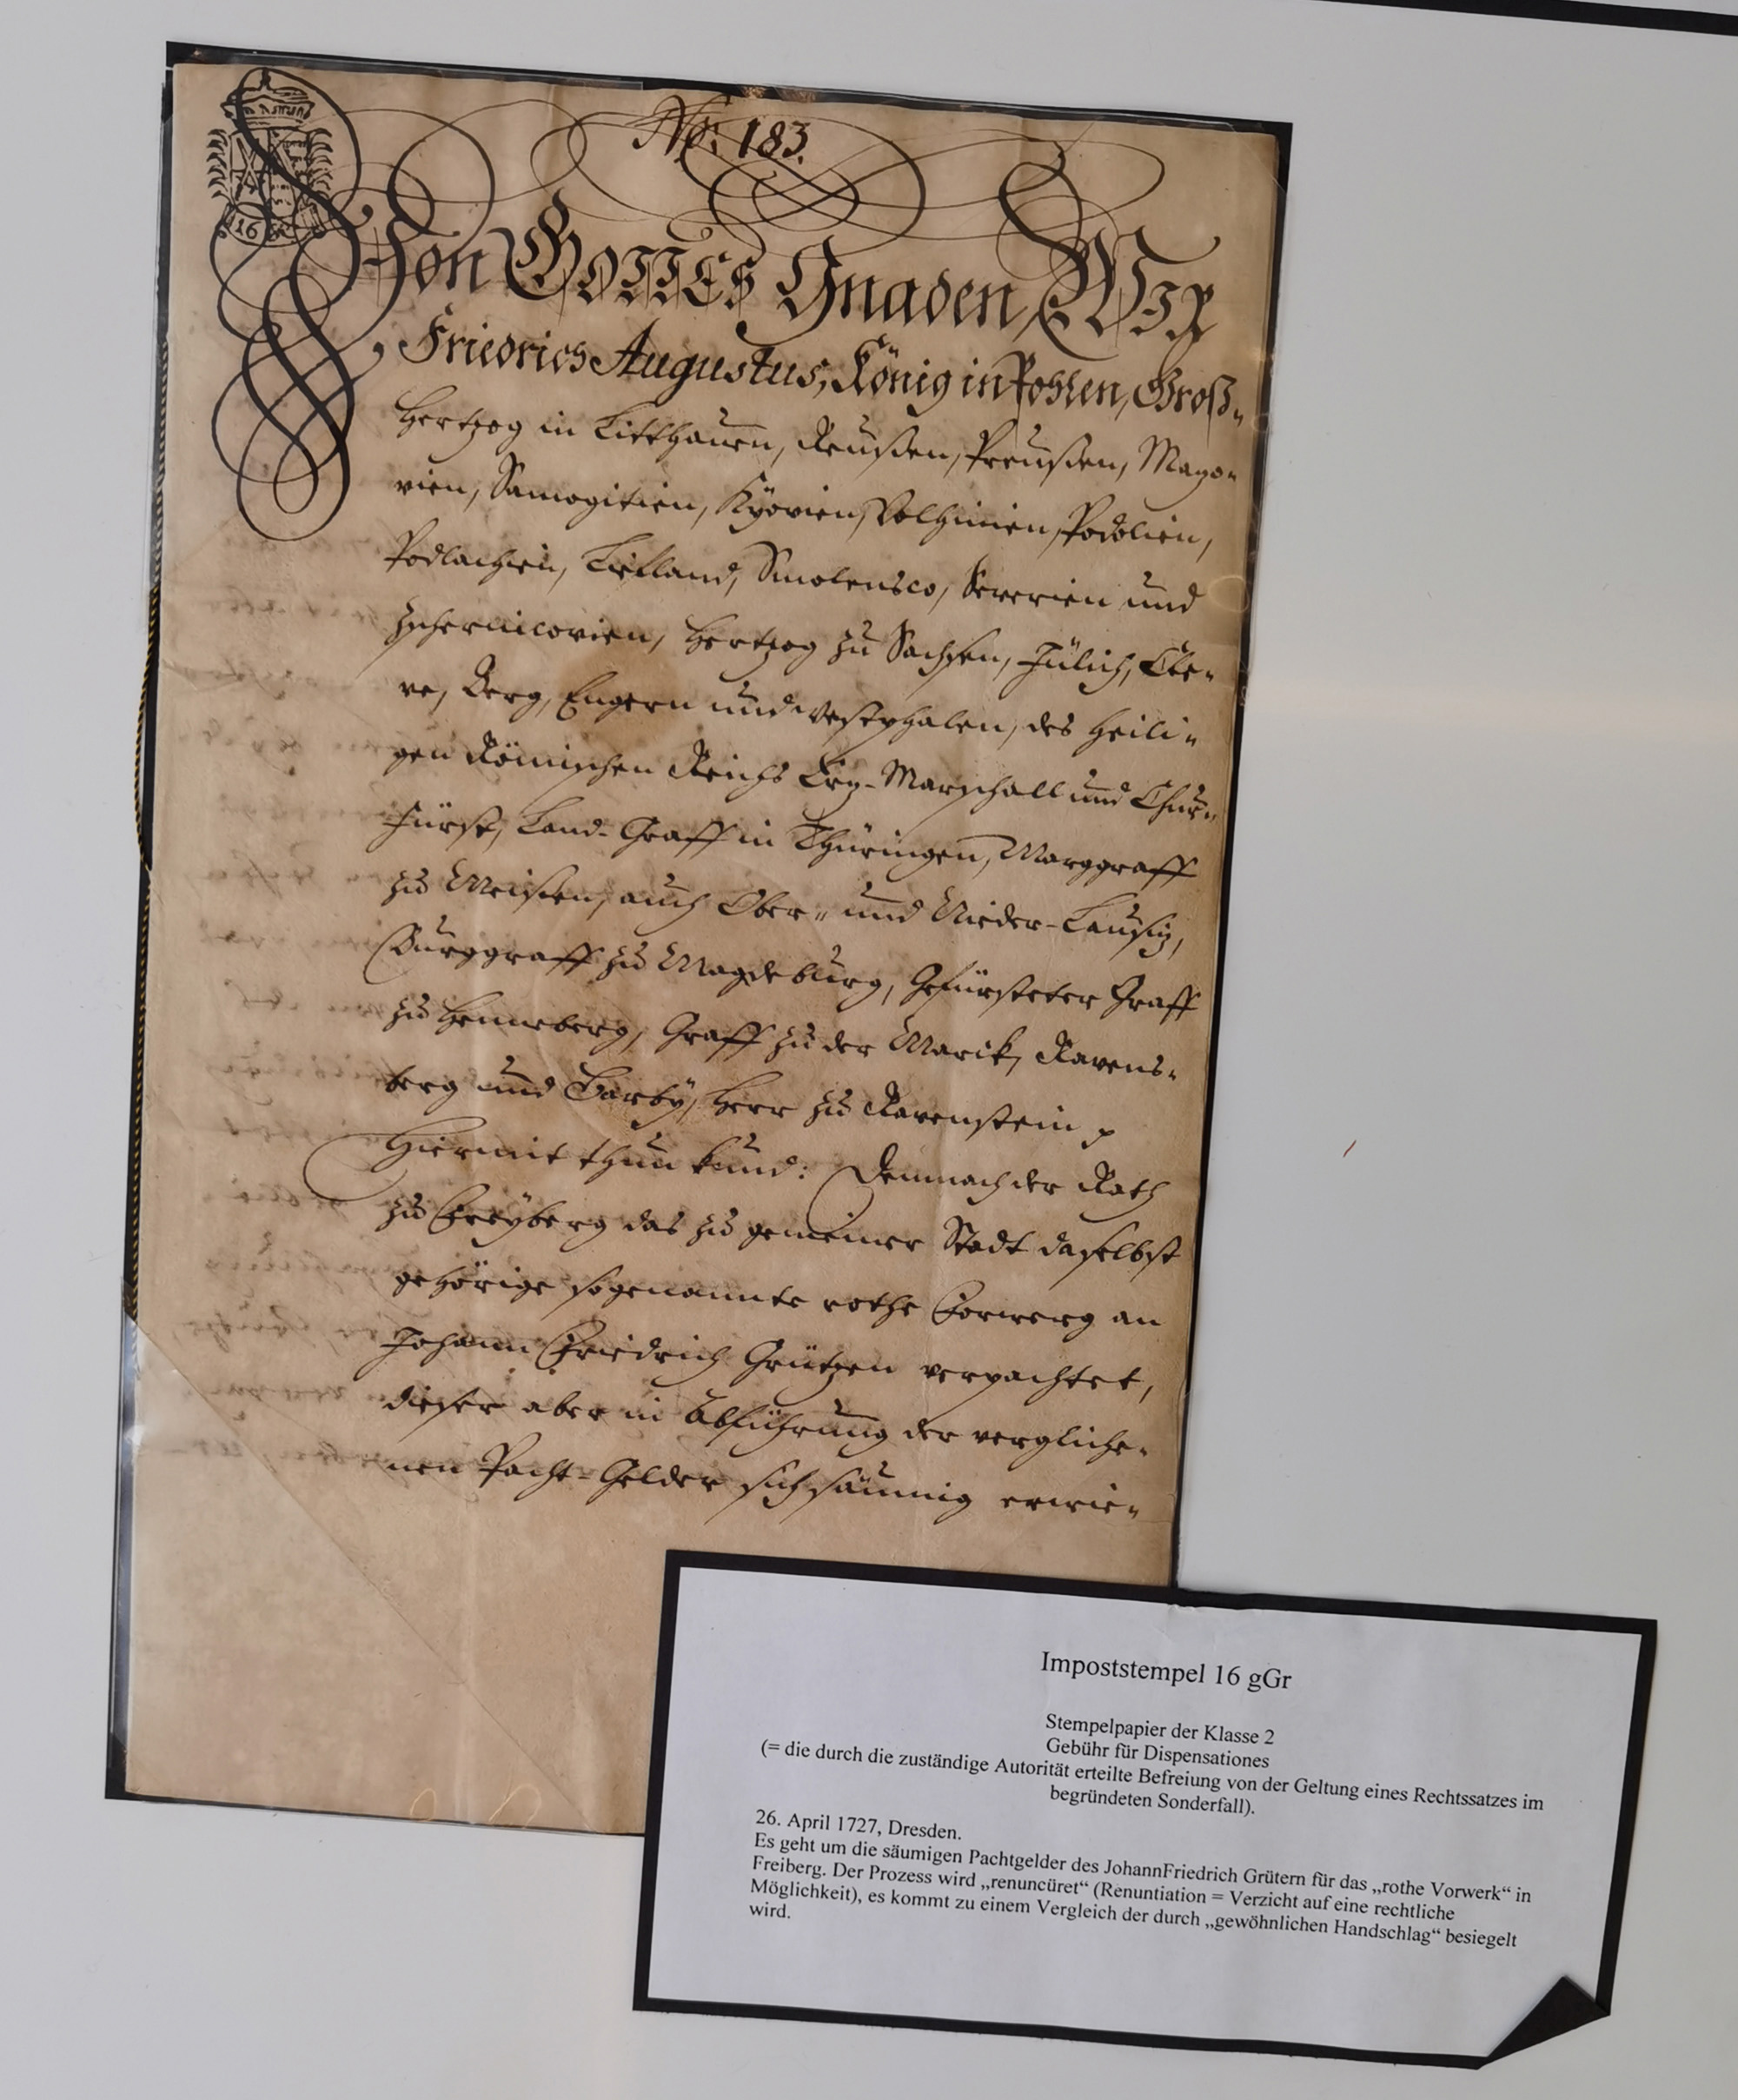 No: 183.
16
Von GOTTES Gnaden, WIR
Friedrich Augustus, König in Pohlen, Groß-
Hertzog in Litthauen, Reußen, Preußen, Mazo-
vien, Samogitien, Kyovien, Volhinien, Podolien,
Podlachien, Liefland, Smolensco, Severien und
Zschernicovien, Hertzog zu Sachsen, Jülich, Cle-
ve, Berg, Engern und Westphalen, des Heili-
gen Römischen Reichs Ertz-Marschall und Chur-
Fürst, Land-Graff in Thüringen, Marggraff
zu Meißen, auch Ober- und Nieder-Lausitz,
Burggraff zu Magdeburg, Gefürsteter Graff
zu Henneberg, Graff zu der Marck, Ravens-
berg und Barby, Herr zu Ravenstein
Hiermit thun kund: Demnach der Rath
zu Freyberg das zu gemeiner Stadt daselbst
gehörige sogenannte rothe Forwerg an
Johann Friedrich Grützen verpachtet,
dieser aber in Abführung der vergliche-
nen Pacht-Gelder sich säumig erwie-
Impoststempel 16 gGr
Stempelpapier der Klasse 2
Gebühr für Dispensationes
(= die durch die zuständige Autorität erteilte Befreiung von der Geltung eines Rechtssatzes im
begründeten Sonderfall).
26. April 1727, Dresden.
Es geht um die säumigen Pachtgelder des JohannFriedrich Grütern für das „rothe Vorwerk“ in
Freiberg. Der Prozess wird „renuncüret“ (Renuntiation = Verzicht auf eine rechtliche
Möglichkeit), es kommt zu einem Vergleich der durch „gewöhnlichen Handschlag“ besiegelt
wird.